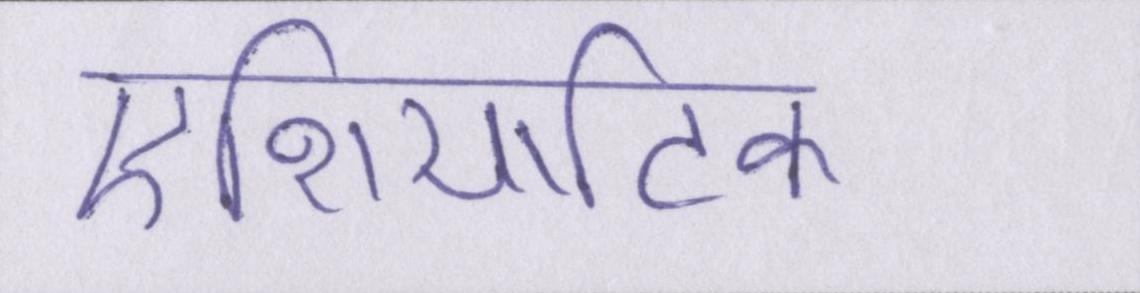 एशियाटिक